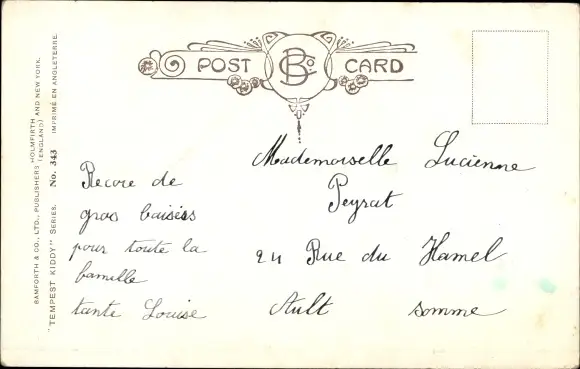 POST CARD
BCo.
BAMFORTH & CO., LTD., PUBLISHERS HOLMFIRTH (ENGLAND) AND NEW YORK.
"TEMPEST KIDDY" SERIES. No. 343 IMPRIMÉ EN ANGLETERRE.
Recoie de
gros baisées
pour toute la
famille
tante Louise
Mademoiselle Lucienne
Peyrat
24 Rue du Hamel
Ault somme